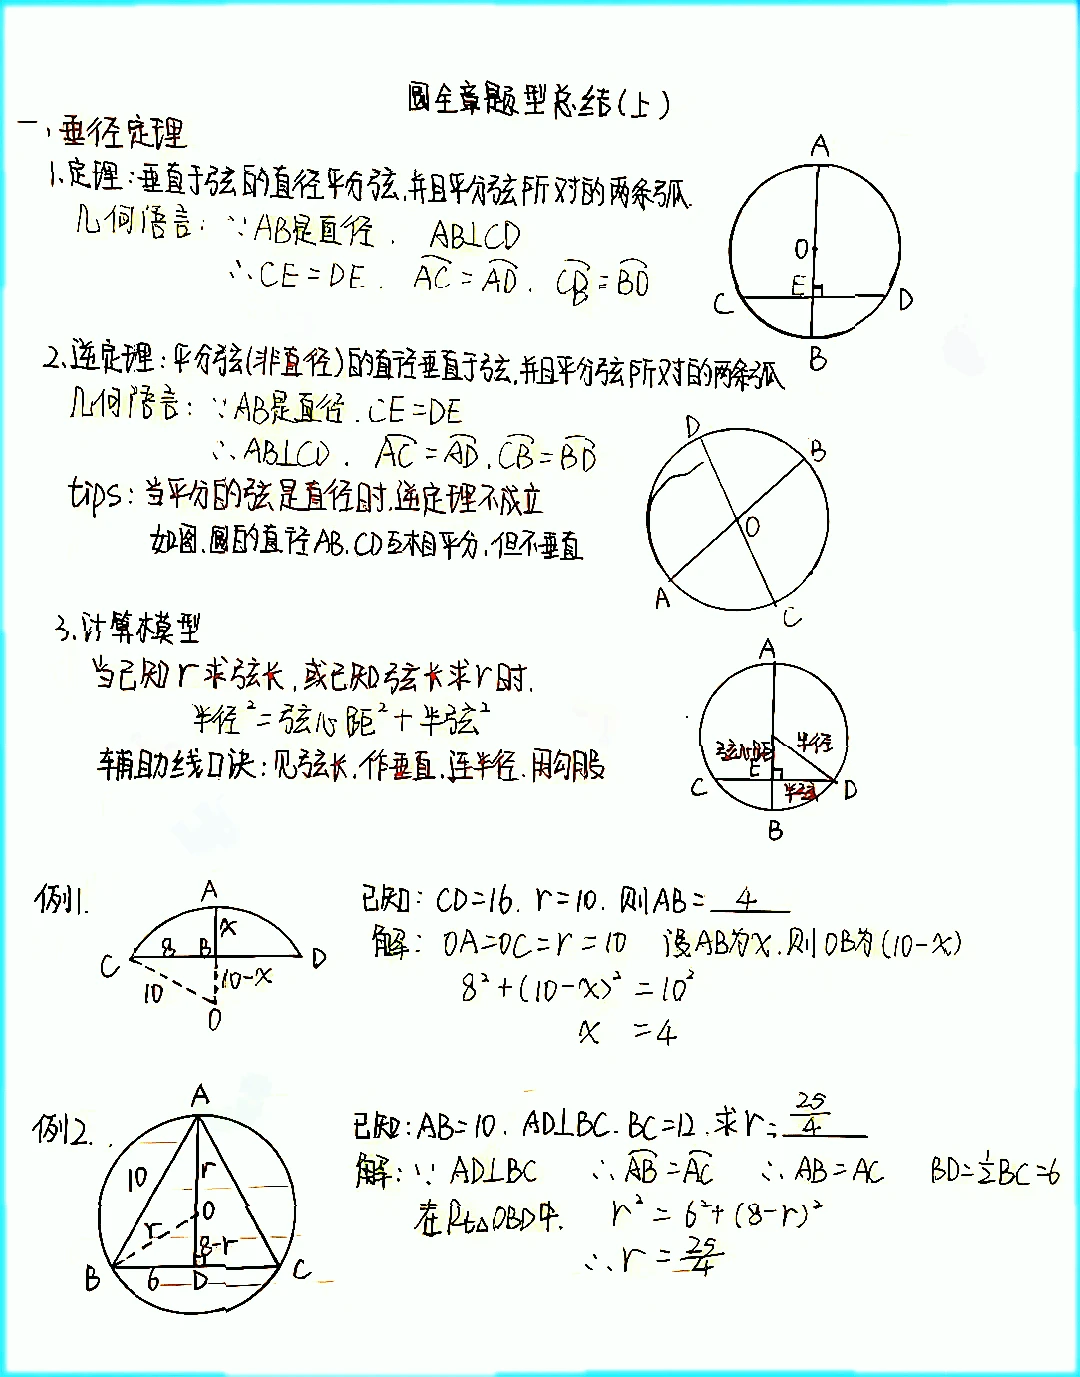 圆全章题型总结(上)
一、垂径定理
1.定理:垂直于弦的直径平分弦,并且平分弦所对的两条弧.
几何语言:∵AB是直径. AB⊥CD
∴CE=DE. A͡C=A͡D. C͡B=B͡D
A
O
E
C
D
B
2.逆定理:平分弦(非直径)的直径垂直于弦,并且平分弦所对的两条弧
几何语言:∵AB是直径.CE=DE
∴AB⊥CD. A͡C=A͡D.C͡B=B͡D
tips:当平分的弦是直径时,逆定理不成立
如图,圆的直径AB.CD互相平分,但不垂直
D
B
O
A
C
3.计算模型
当已知r求弦长,或已知弦长求r时.
半径²=弦心距²+半弦²
辅助线口诀:见弦长,作垂直,连半径,用勾股
A
弦心距 半径
E
C
半弦 D
B
例1.
A
x
8 B
C
D
10
10-x
O
已知:CD=16. r=10. 则AB=4
解:OA=OC=r=10 设AB为x.则OB为(10-x)
8²+(10-x)²=10²
x=4
例2.
A
10 r
O
r
8-r
B 6 D C
已知:AB=10. AD⊥BC. BC=12.求r=25/4
解:∵AD⊥BC ∴A͡B=A͡C ∴AB=AC BD=½BC=6
在Rt△OBD中. r²=6²+(8-r)²
∴r=25/4